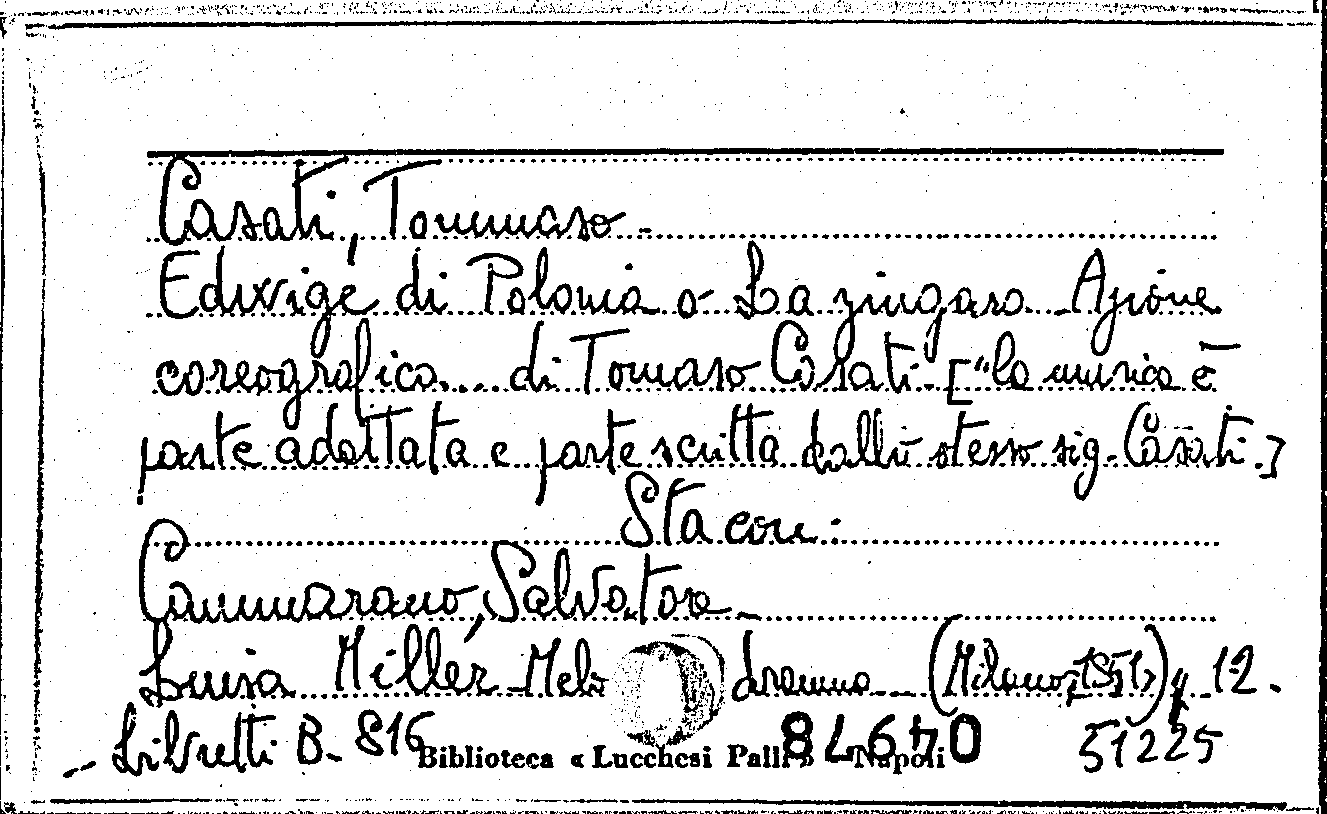 Casati, Tommaso -
Edixvige di Polonia o La zingara. Azione
coreografica.... di Tomaso Casati. ["la musica è
parte adattata e parte scritta dallo stesso sig. Casati.]
Sta con:
Cammarano, Salvatore -
Luisa Miller. Melodramma (Milano, 1851) p. 12.
- Libretti B - 816 Biblioteca « Lucchesi Palli » Napoli 51225